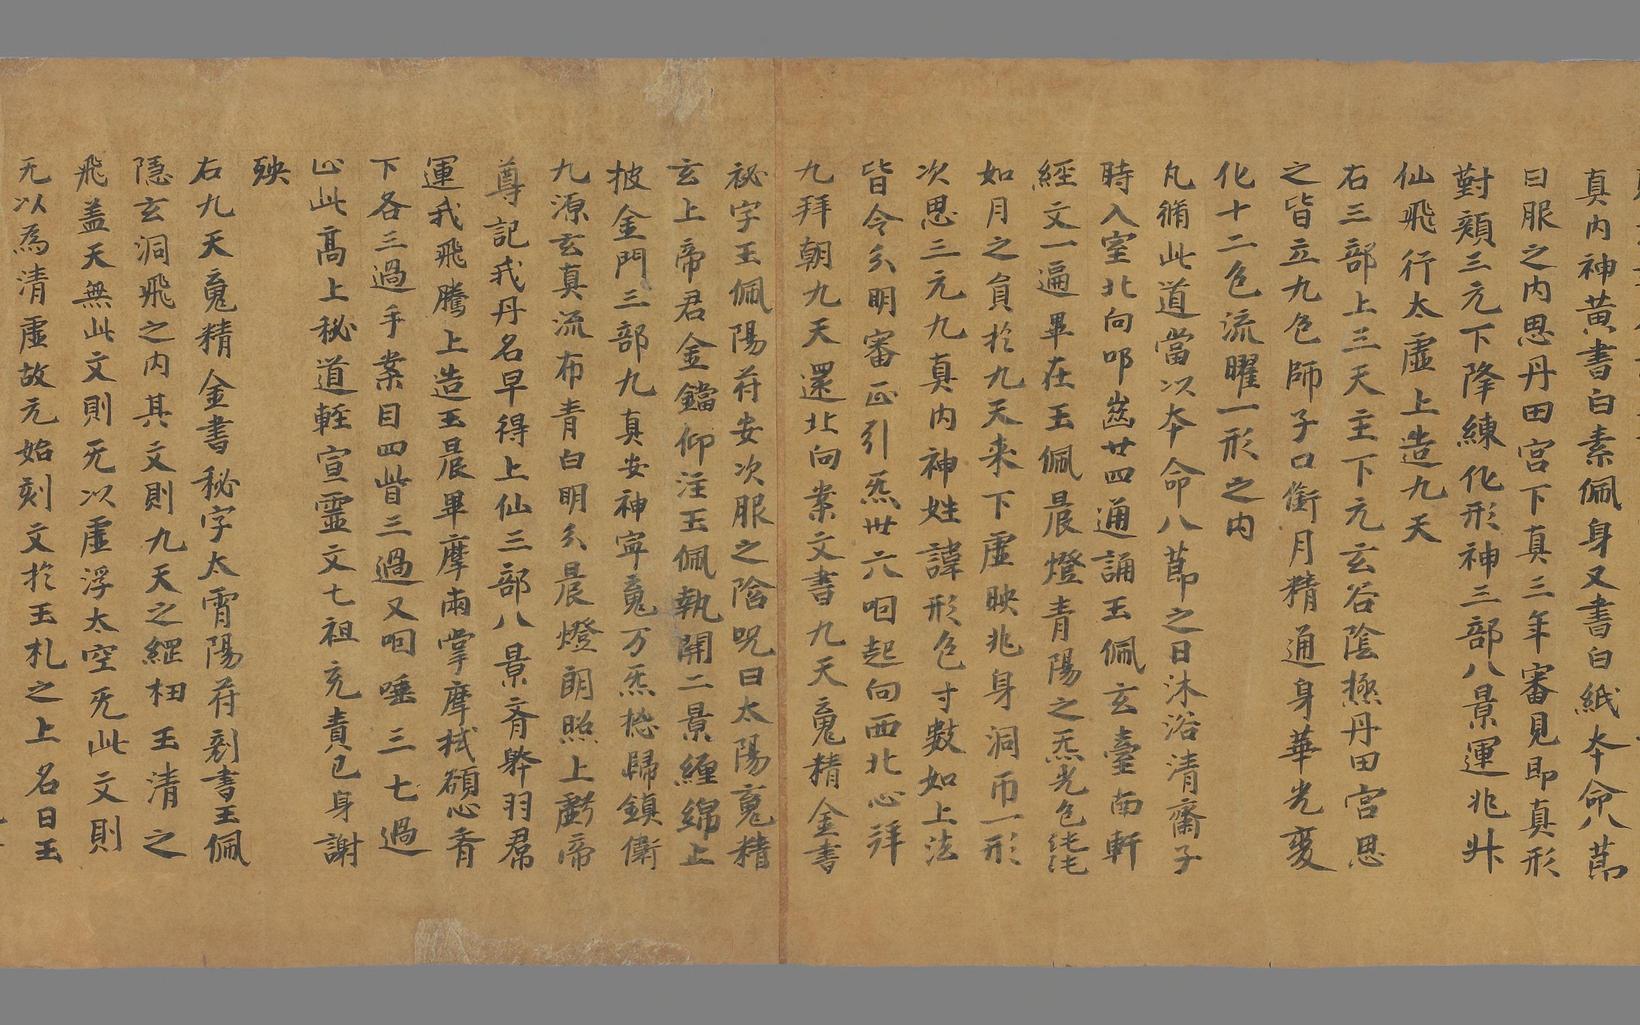 真内神黄書白素佩身又書白紙夲命八莭
日服之内思丹田宫下真三年審見即真形
對頬三元下降練化形神三部八景運兆舛
仙飛行太虚上造九天
右三部上三天主下元玄谷隂極丹田宫思
之皆立九色師子口銜月精通身華光變
化十二色流曜一形之内
凡脩此道當以夲命八莭之日沐浴清齋子
時入室北向叩齒廿四通誦玉佩玄臺南軒
經文一遍畢在玉佩晨燈青陽之炁光色純純
如月之負扵九天来下虚映兆身洞帀一形
次思三元九真内神姓諱形色寸數如上法
皆令分明審正引炁卅六咽起向西北心拜
九拜朝九天還北向案文書九天䰟精金書
祕字玉佩陽苻安次服之隂呪曰太陽䰟精
玄上帝君金鐺仰注玉佩執開二景纏綿上
披金門三部九真安神寜䰟万炁揔歸鎮衛
九源玄真流布青白明分晨燈朗照上虧帝
尊記我丹名早得上仙三部八景齊轡羽羣
運我飛騰上造玉晨畢摩兩掌摩拭碩心香
下各三過手案目四眥三過又咽唾三七過
止此髙上秘道輕宣靈文七祖充責已身謝
殃
右九天䰟精金書秘字太霄陽苻刻書玉佩
隱玄洞飛之内其文則九天之䌉杻玉清之
飛盖天無此文則无以虚浮太空无此文則
无以為清虚故元始刻文扵玉札之上名曰玉